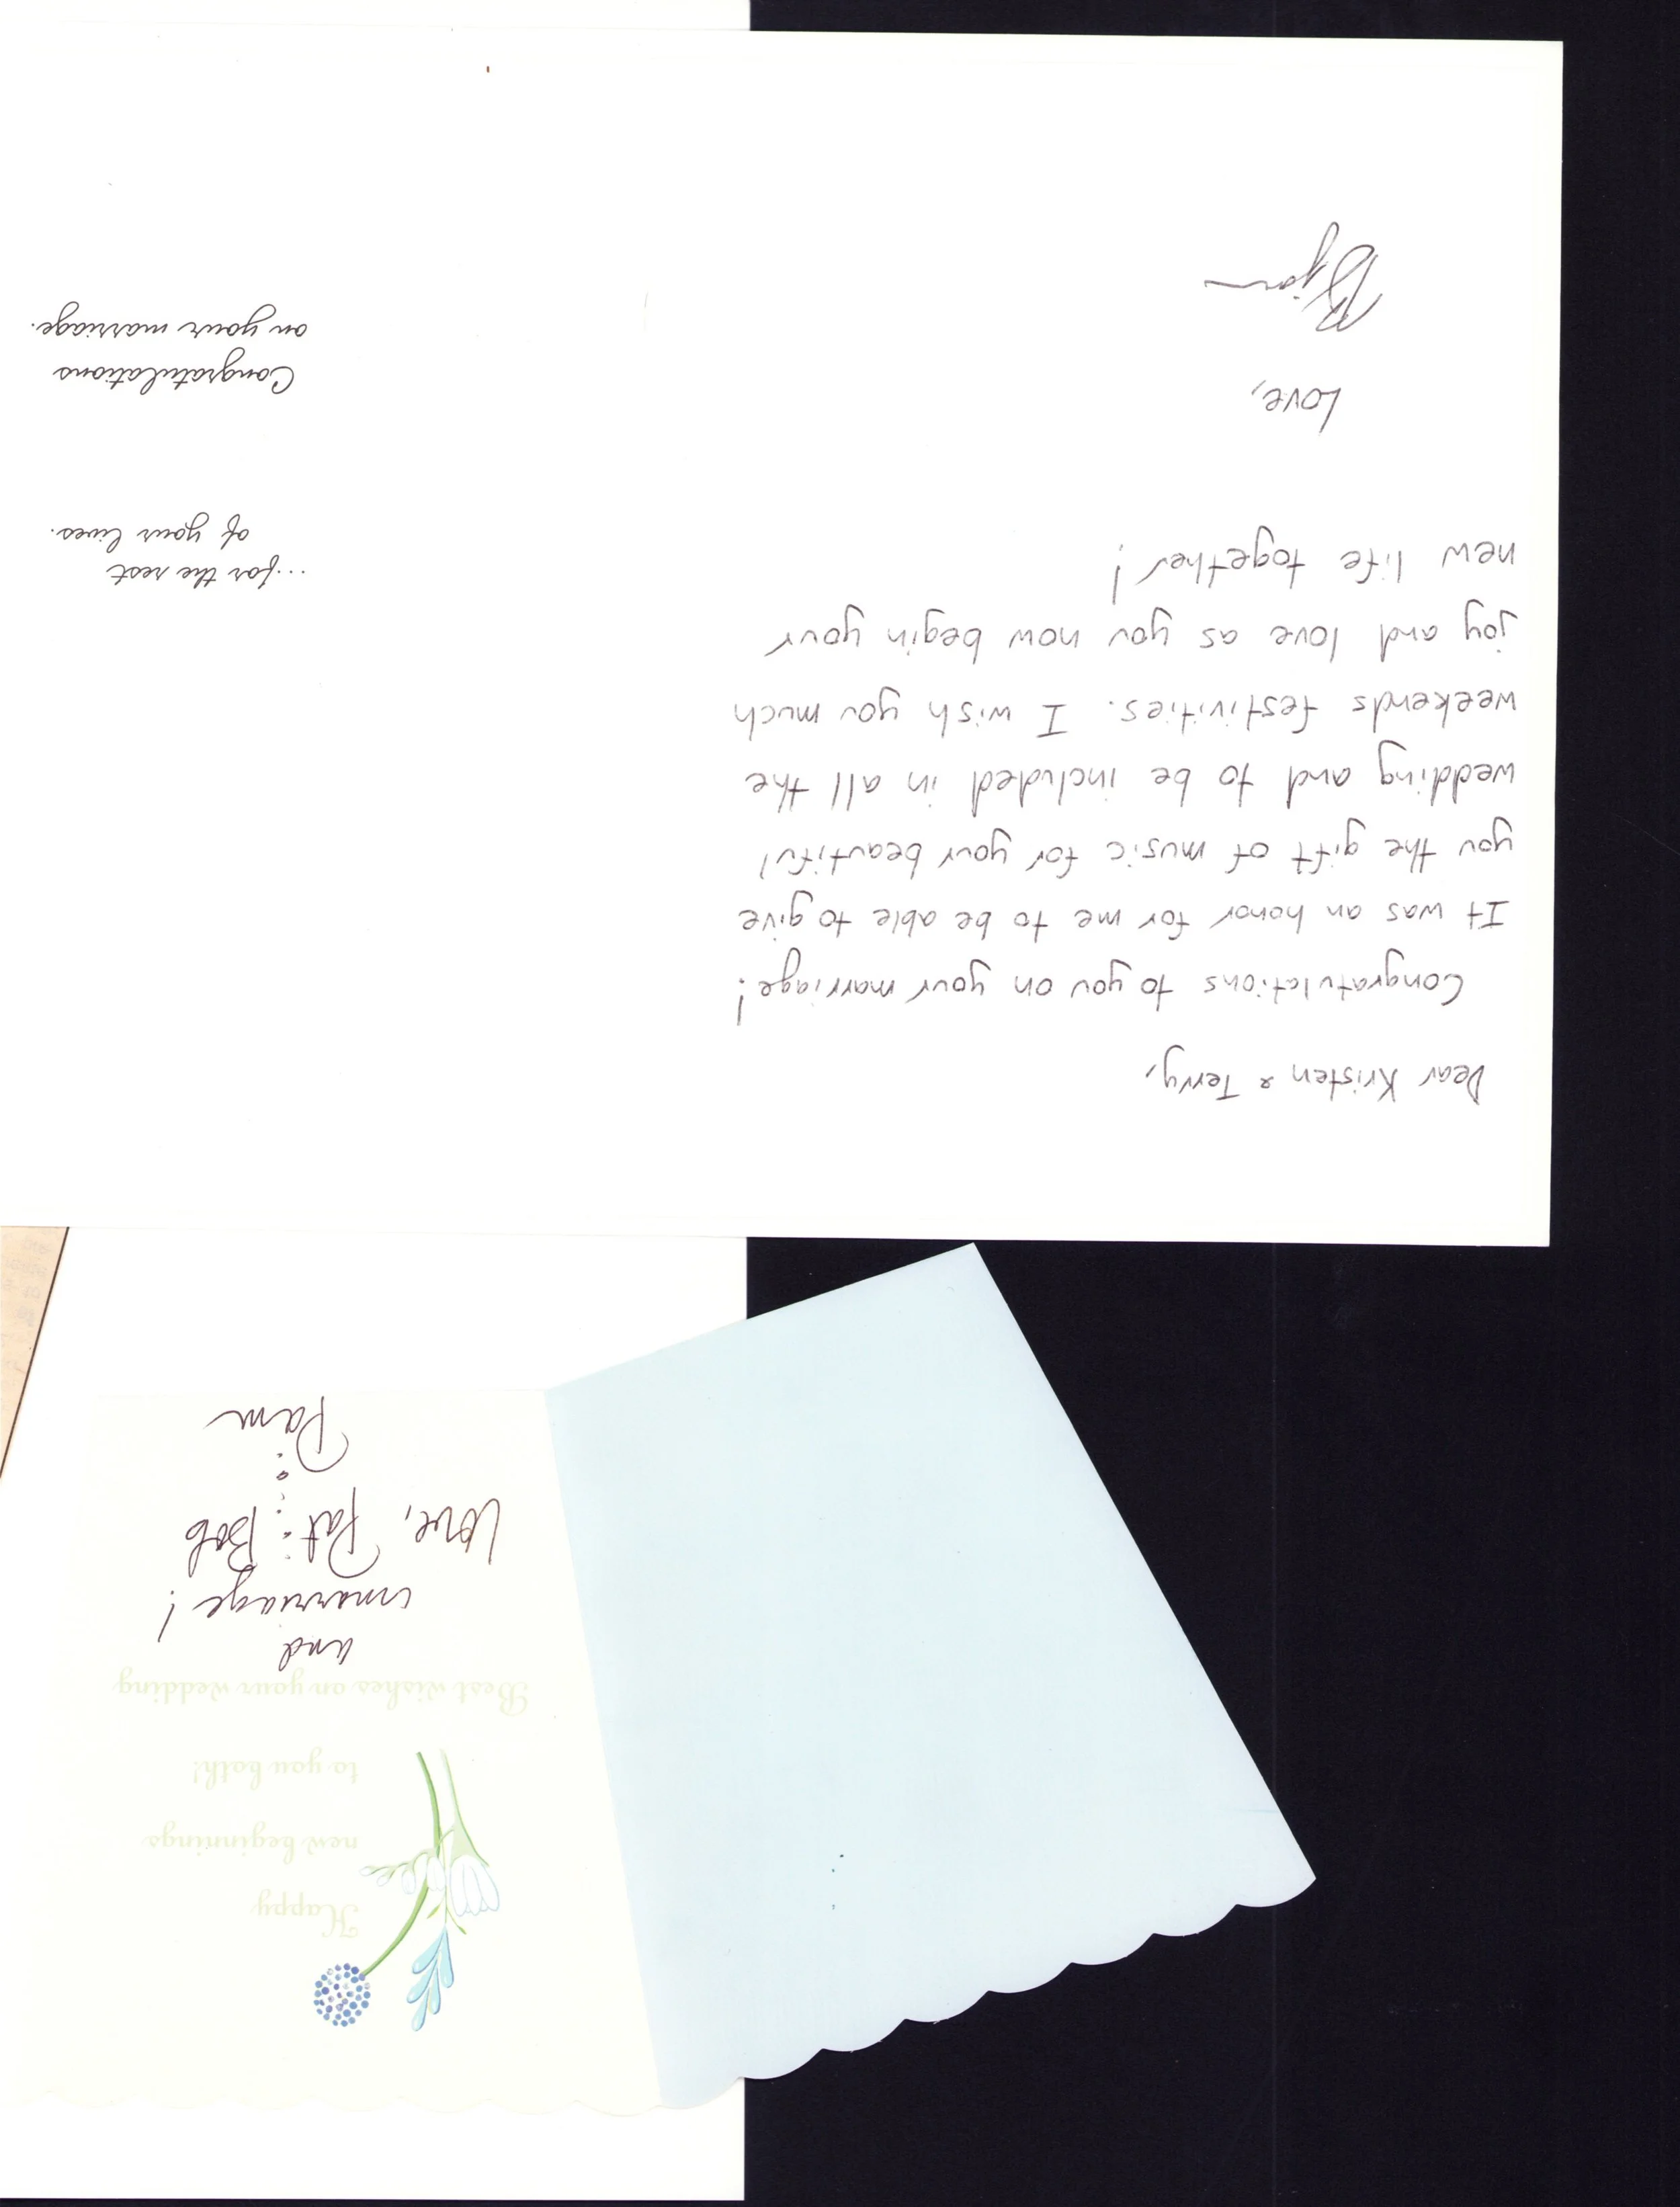 Happy
new beginnings
to you both!
Best wishes on your wedding
and
marriage!
Love, Pat & Bob
&
Pam
Dear Kristen & Terry,
Congratulations to you on your marriage!
It was an honor for me to be able to give
you the gift of music for your beautiful
wedding and to be included in all the
weekends festivities. I wish you much
joy and love as you now begin your
new life together!
Love,
Bijan
...for the rest
of your lives.
Congratulations
on your marriage.